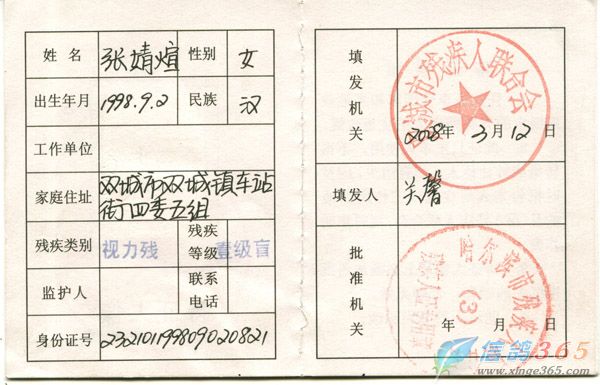 姓名 张婧煊 性别 女
出生年月 1998.9.2 民族 汉
工作单位
家庭住址 双城市双城镇车站
街四委五组
残疾类别 视力残 残疾等级 壹级盲
监护人 联系电话
身份证号 232101199809020821
填发机关
双城市残疾人联合会
2008年3月12日
填发人 关馨
批准机关
哈尔滨市残疾人
(3)
年 月 日
信鸽365
www.xinge365.com